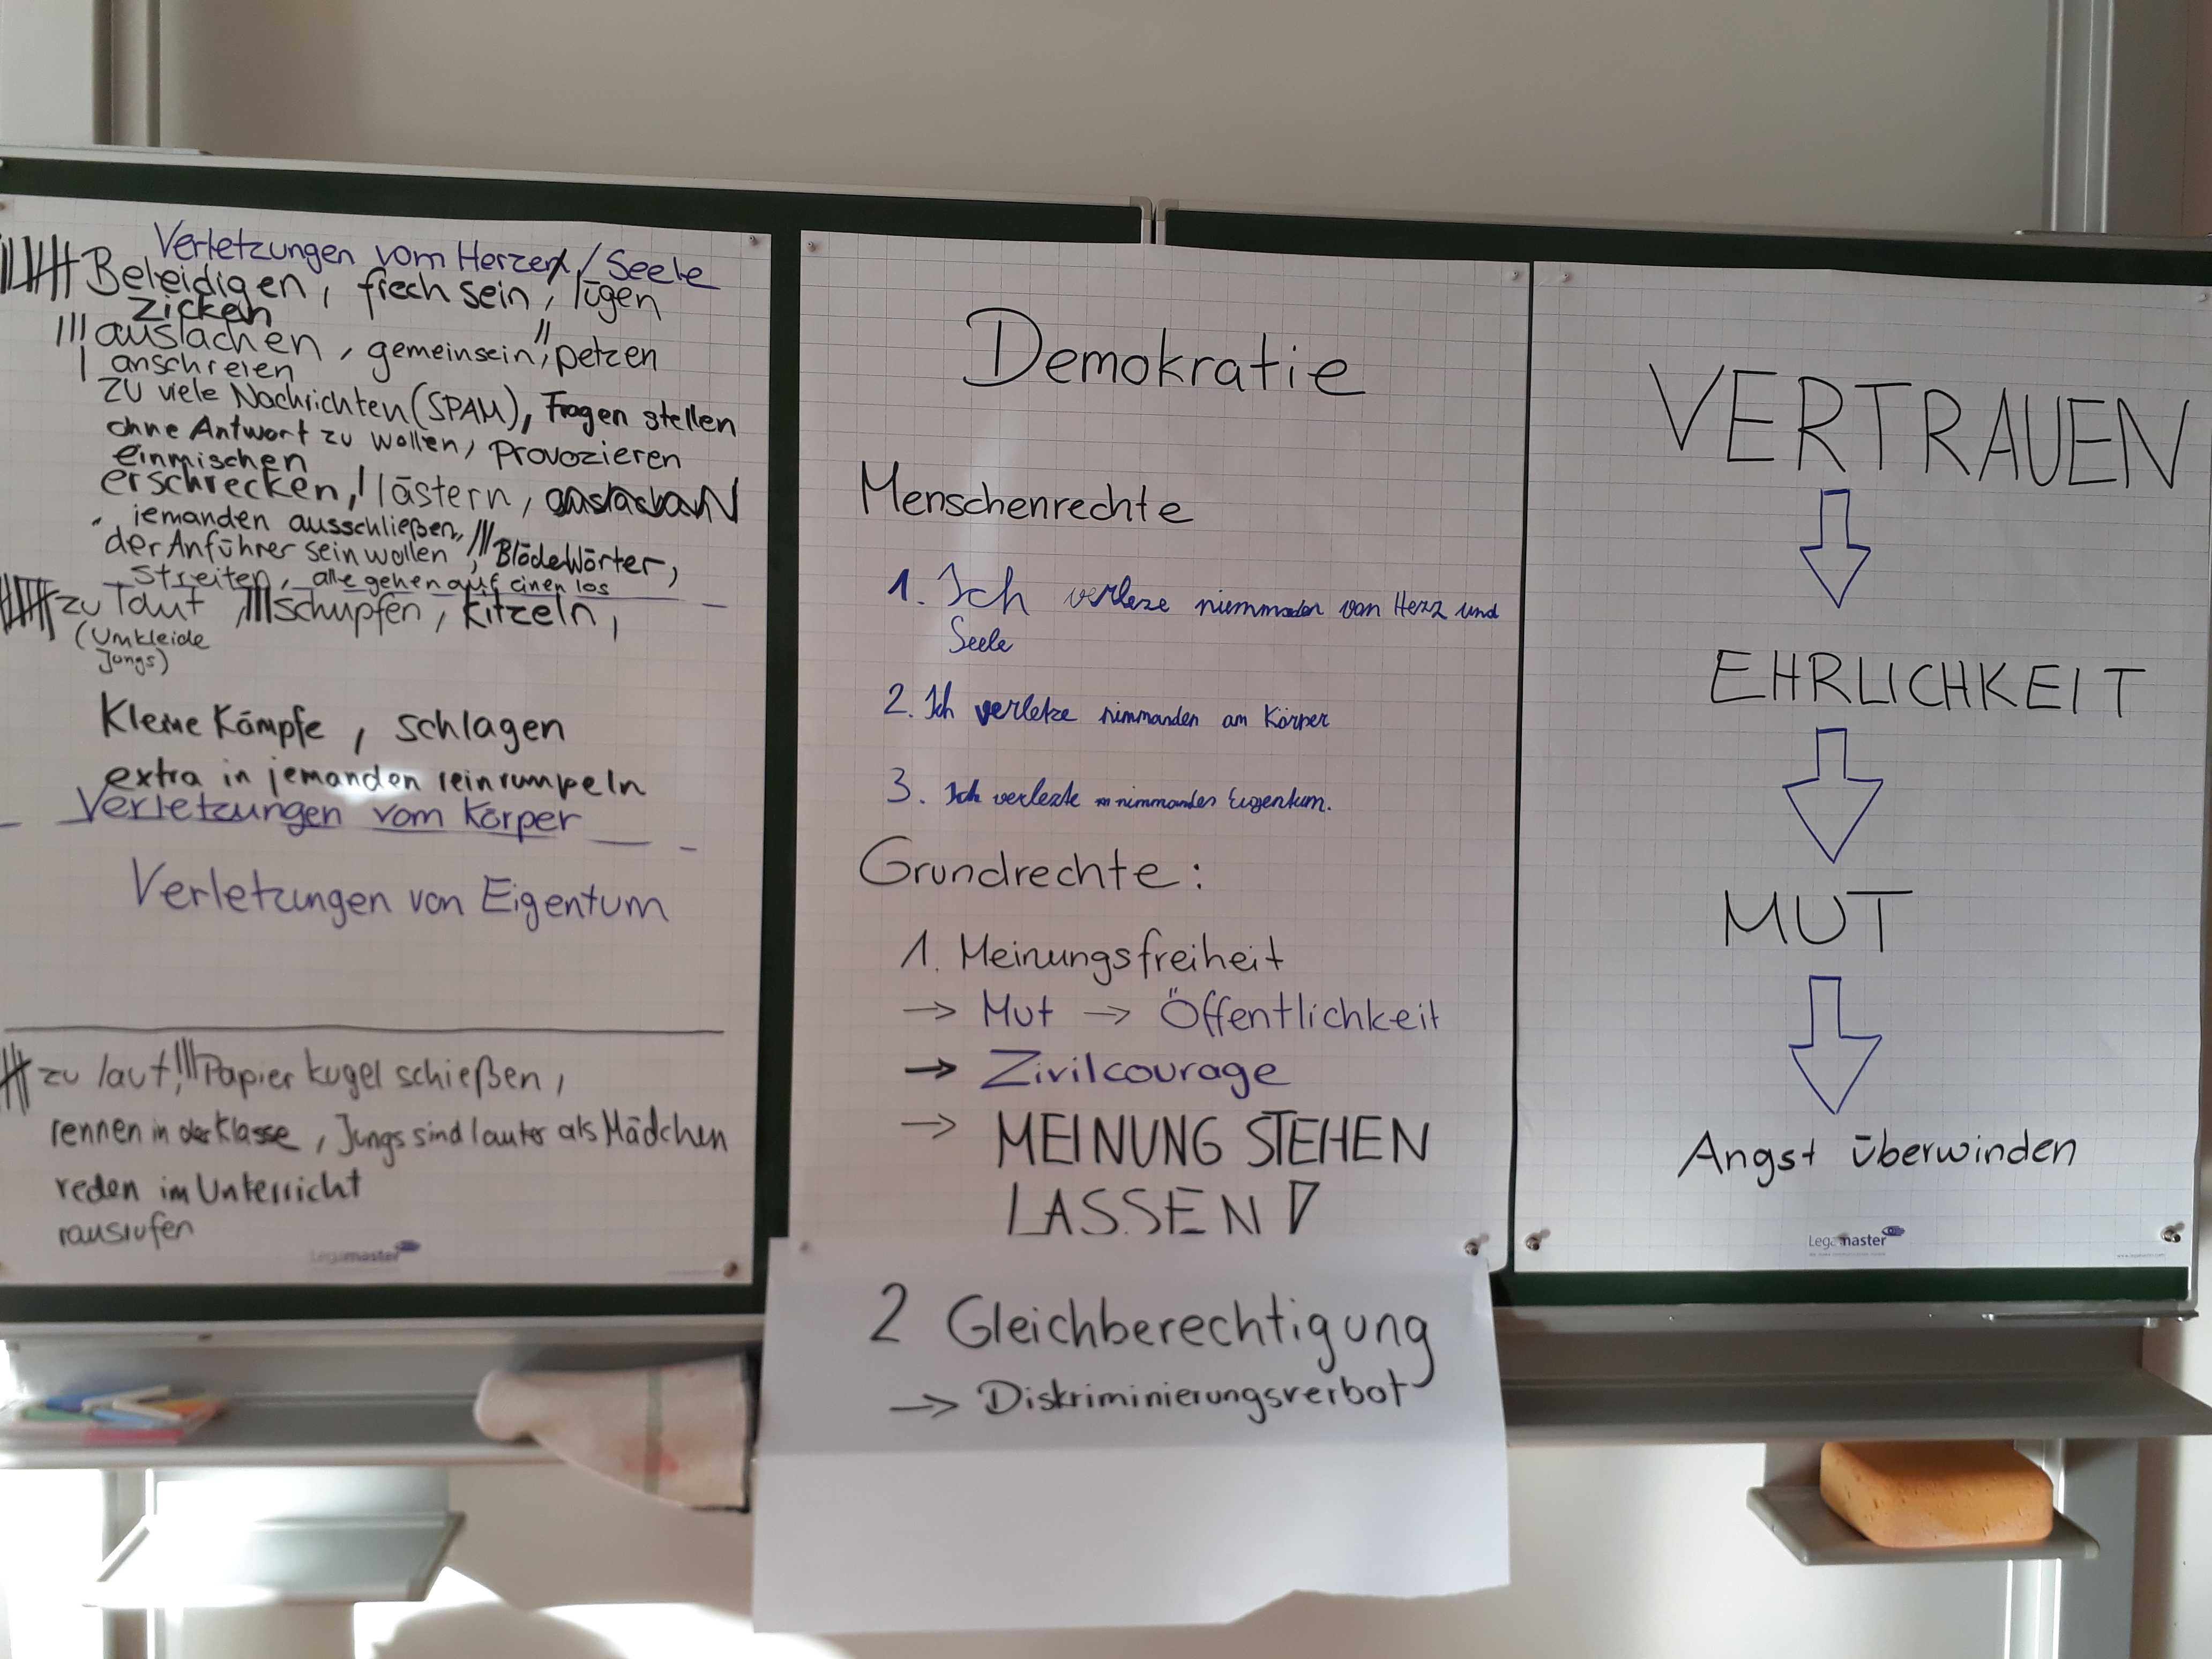 Verletzungen vom Herzen / Seele
Beleidigen, frech sein, lügen
Zicken
auslachen, gemeinsein, petzen
anschreien
zu viele Nachrichten (SPAM), Fragen stellen
ohne Antwort zu wollen, Provozieren
einmischen
erschrecken, lästern,
jemanden ausschließen,
der Anführer sein wollen, Blöde Wörter,
streiten, alle gehen auf einen los
zu laut, schupfen, kitzeln,
(Umkleide
Jungs)
Kleine Kämpfe, schlagen
extra in jemanden reinrumpeln
Verletzungen vom Körper
Verletzungen von Eigentum
zu laut, Papier kugel schießen,
rennen in der Klasse, Jungs sind lauter als Mädchen
reden im Unterricht
rausrufen
Legamaster
Demokratie
Menschenrechte
1. Ich verleze niemmaden von Herz und
Seele
2. Ich verletze nimmanden am Körper
3. Ich verlezte nimmandes Eigentum.
Grundrechte:
1. Meinungsfreiheit
→ Mut → Öffentlichkeit
→ Zivilcourage
→ MEINUNG STEHEN
LASSEN!
2 Gleichberechtigung
→ Diskriminierungsverbot
VERTRAUEN
EHRLICHKEIT
MUT
Angst überwinden
Legamaster